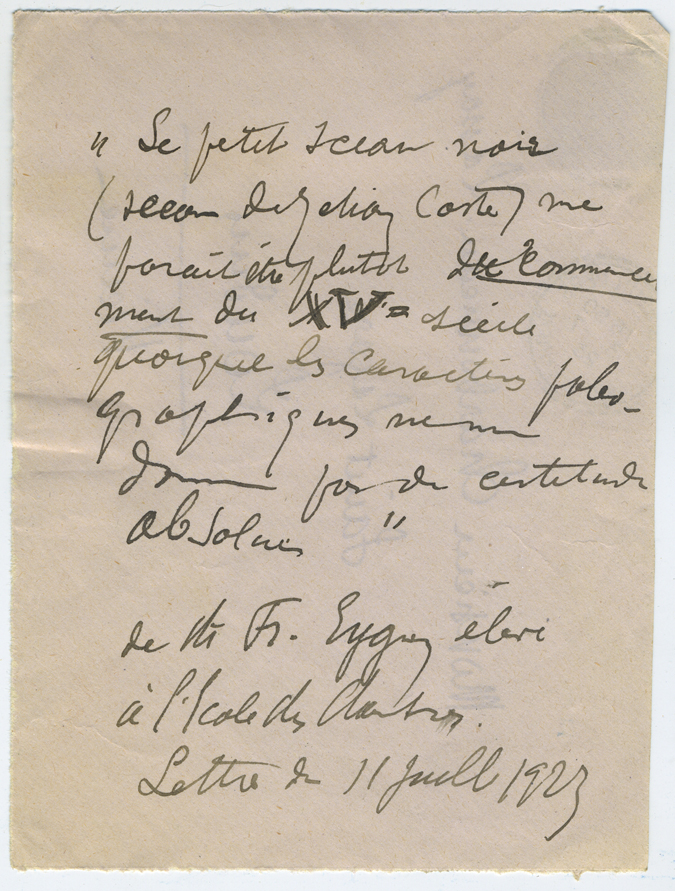 " Le petit sceau noir
(sceau de Coste) me
parait être plutot du commence
ment du XIVe siècle
quoique les caractères paléo-
graphiques ne me
donnent pas de certitude
absolues "
de Mr Fr. Eygun élève
à l'École des Chartres.
Lettre du 11 Juill 1927